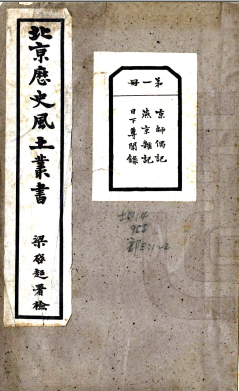 北京歷史風土叢書
梁啓超署檢
第一冊
京師偶記
燕京雜記
日下尊聞錄